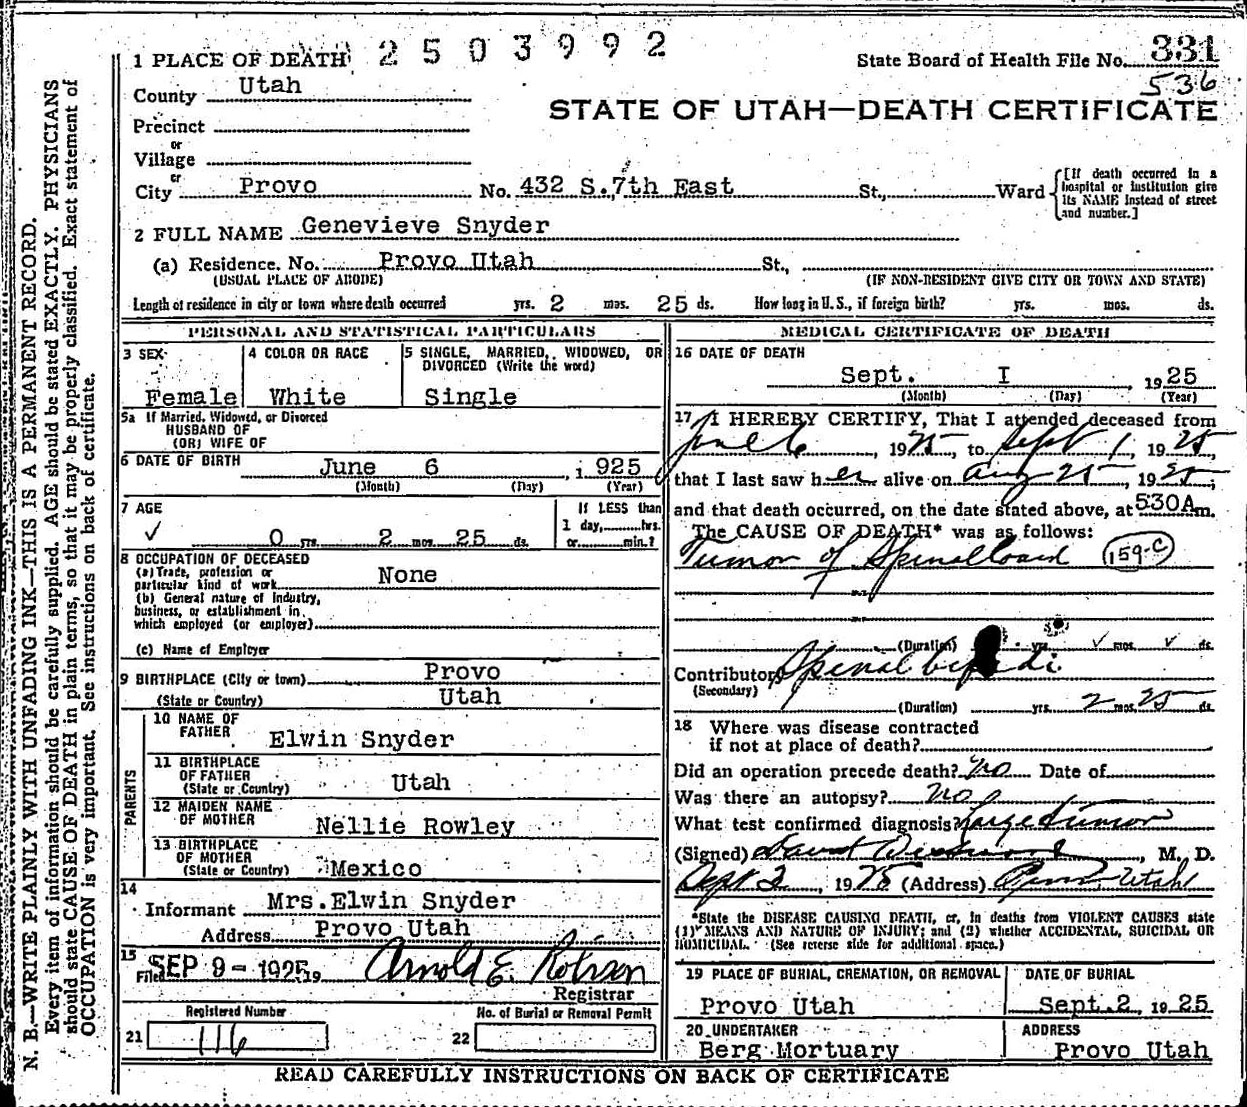 1 PLACE OF DEATH 2503992
State Board of Health File No. 331
536
County Utah
STATE OF UTAH—DEATH CERTIFICATE
Precinct
or
Village
or
City Provo No. 432 S. 7th East St., Ward
[If death occurred in a hospital or institution give its NAME instead of street and number.]
2 FULL NAME Genevieve Snyder
(a) Residence. No. Provo Utah St.,
(USUAL PLACE OF ABODE) (IF NON-RESIDENT GIVE CITY OR TOWN AND STATE)
Length of residence in city or town where death occurred yrs. 2 mos. 25 ds. How long in U. S., if foreign birth? yrs. mos. ds.
PERSONAL AND STATISTICAL PARTICULARS
3 SEX 4 COLOR OR RACE 5 SINGLE, MARRIED, WIDOWED, OR
DIVORCED (Write the word)
Female White Single
5a If Married, Widowed, or Divorced
HUSBAND OF
(OR) WIFE OF
6 DATE OF BIRTH June 6, 1925
(Month) (Day) (Year)
7 AGE If LESS than
1 day, hrs.
✓ 0 yrs. 2 mos. 25 ds. or min.?
8 OCCUPATION OF DECEASED
(a) Trade, profession or
particular kind of work None
(b) General nature of industry,
business, or establishment in
which employed (or employer)
(c) Name of Employer
9 BIRTHPLACE (City or town) Provo
(State or Country) Utah
PARENTS
10 NAME OF
FATHER Elwin Snyder
11 BIRTHPLACE
OF FATHER
(State or Country) Utah
12 MAIDEN NAME
OF MOTHER Nellie Rowley
13 BIRTHPLACE
OF MOTHER
(State or Country) Mexico
14
Informant Mrs. Elwin Snyder
Address Provo Utah
15
Filed SEP 9 - 1925 19 Arnold E. Robison
Registrar
Registered Number No. of Burial or Removal Permit
21 116 22
MEDICAL CERTIFICATE OF DEATH
16 DATE OF DEATH
Sept. I, 1925
(Month) (Day) (Year)
17 I HEREBY CERTIFY, That I attended deceased from
June 6, 1925, to Sept 1, 1925
that I last saw her alive on aug 25, 1925;
and that death occurred, on the date stated above, at 530 A m.
The CAUSE OF DEATH* was as follows:
Tumor of Spinal Coard 159-C
(Duration) yrs. ✓ mos. ✓ ds.
Contributory Spinal bifidi
(Secondary)
(Duration) yrs. 2 mos. 25 ds.
18 Where was disease contracted
if not at place of death?
Did an operation precede death? No Date of
Was there an autopsy? No
What test confirmed diagnosis Large tumor
(Signed) David, M. D.
Sept 2, 1925 (Address) Provo Utah
*State the DISEASE CAUSING DEATH, or, in deaths from VIOLENT CAUSES state
(1) MEANS AND NATURE OF INJURY; and (2) whether ACCIDENTAL, SUICIDAL OR
HOMICIDAL. (See reverse side for additional space.)
19 PLACE OF BURIAL, CREMATION, OR REMOVAL DATE OF BURIAL
Provo Utah Sept. 2, 1925
20 UNDERTAKER ADDRESS
Berg Mortuary Provo Utah
READ CAREFULLY INSTRUCTIONS ON BACK OF CERTIFICATE
N. B.—WRITE PLAINLY WITH UNFADING INK—THIS IS A PERMANENT RECORD.
Every item of information should be carefully supplied. AGE should be stated EXACTLY. PHYSICIANS
should state CAUSE OF DEATH in plain terms, so that it may be properly classified. Exact statement of
OCCUPATION is very important. See instructions on back of certificate.